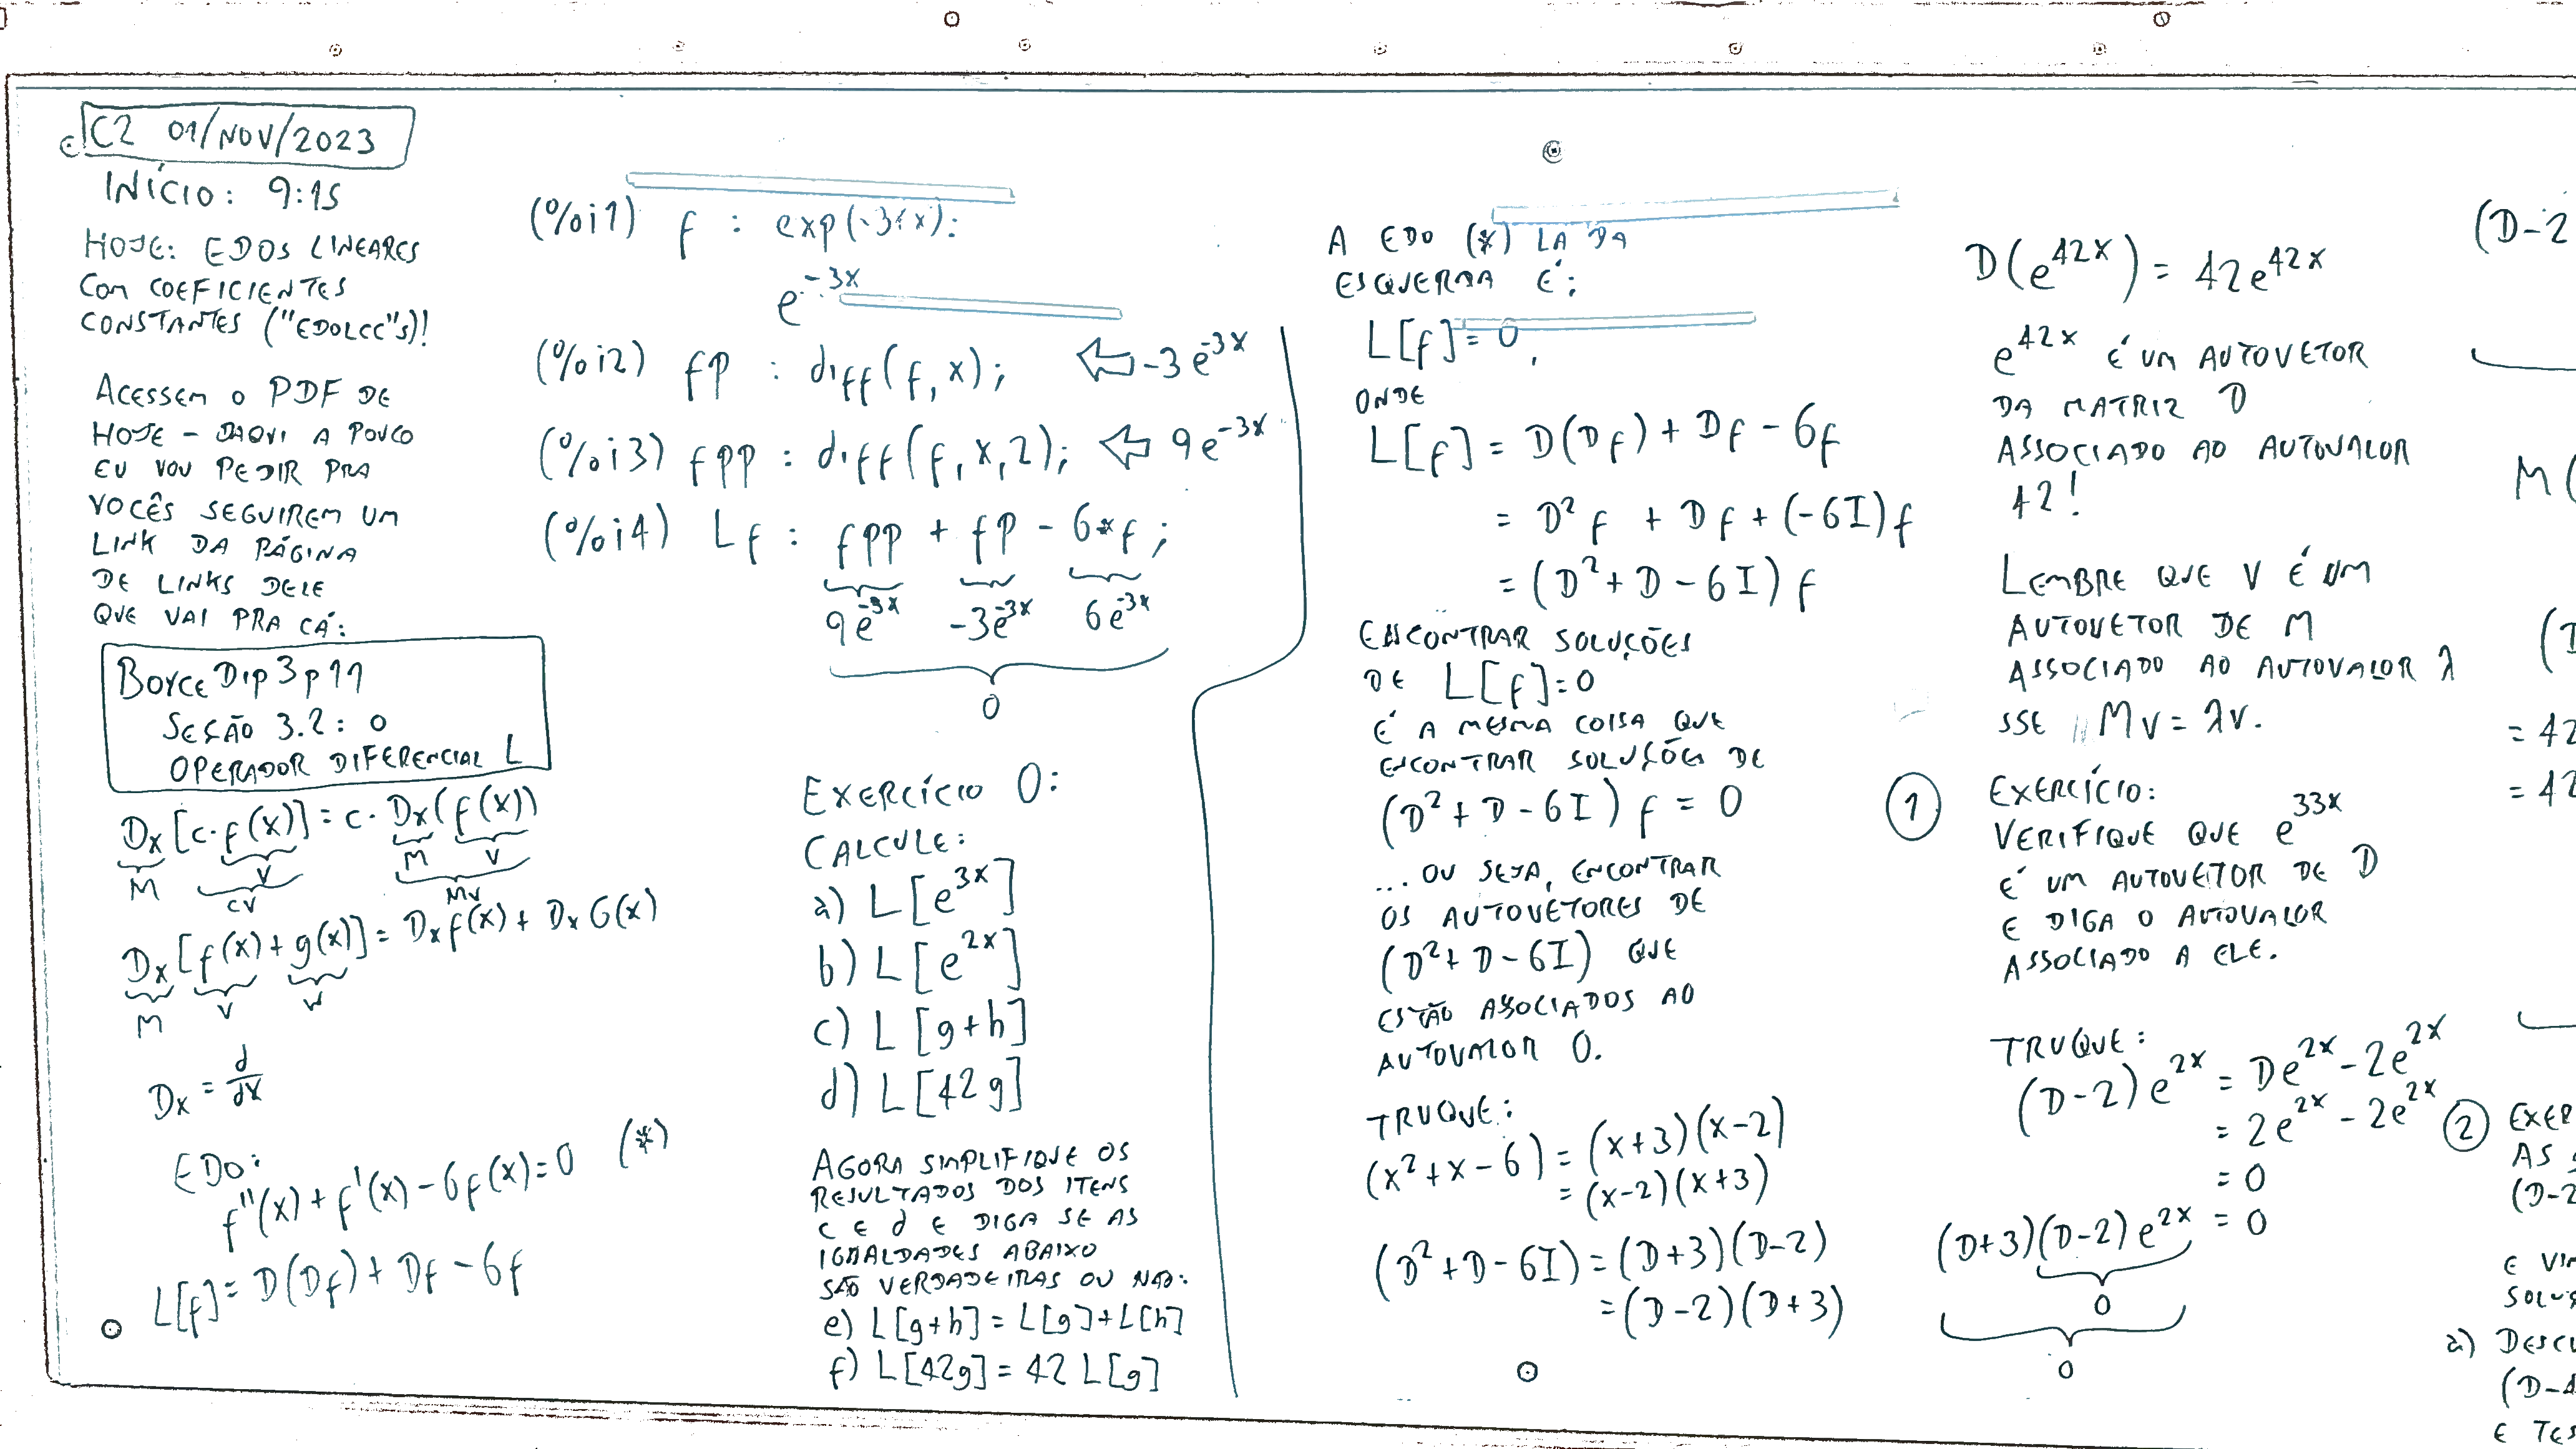 C2 01/NOV/2023
INÍCIO: 9:15
HOJE: EDOS LINEARES
COM COEFICIENTES
CONSTANTES ("EDOLCC"s)!
ACESSEM O PDF DE
HOJE – DAQUI A POUCO
EU VOU PEDIR PRA
VOCÊS SEGUIREM UM
LINK DA PÁGINA
DE LINKS DELE
QUE VAI PRA CÁ:
BoyceDip3p11
SEÇÃO 3.2: O
OPERADOR DIFERENCIAL L
Dx[c·f(x)] = c·Dx(f(x))
M V M V
CV MV
Dx[f(x)+g(x)] = Dxf(x) + DxG(x)
M V W
Dx = d/dx
EDO:
f''(x)+f'(x)-6f(x)=0 (*)
L[f] = D(Df) + Df - 6f
(%i1) f : exp(-3*x):
e^-3x
(%i2) fp : diff(f,x); ⇐ -3e^-3x
(%i3) fpp : diff(f,x,2); ⇐ 9e^-3x
(%i4) Lf : fpp + fp - 6*f;
9e^-3x -3e^-3x 6e^-3x
0
EXERCÍCIO 0:
CALCULE:
a) L[e^3x]
b) L[e^2x]
c) L[g+h]
d) L[42g]
AGORA SIMPLIFIQUE OS
RESULTADOS DOS ITENS
C E d E DIGA SE AS
IGUALDADES ABAIXO
SÃO VERDADEIRAS OU NÃO:
e) L[g+h] = L[g]+L[h]
f) L[42g] = 42 L[g]
A EDO (*) LÁ DA
ESQUERDA É:
L[f] = 0,
ONDE
L[f] = D(Df) + Df - 6f
= D² f + Df + (-6I)f
= (D² + D - 6I) f
ENCONTRAR SOLUÇÕES
DE L[f]=0
É A MESMA COISA QUE
ENCONTRAR SOLUÇÕES DE
(D² + D - 6I) f = 0
... OU SEJA, ENCONTRAR
OS AUTOVETORES DE
(D² + D - 6I) QUE
ESTÃO ASSOCIADOS AO
AUTOVALOR 0.
TRUQUE:
(x² + x - 6) = (x+3)(x-2)
= (x-2)(x+3)
(D² + D - 6I) = (D+3)(D-2)
= (D-2)(D+3)
D(e^42x) = 42e^42x
e^42x É UM AUTOVETOR
DA MATRIZ D
ASSOCIADO AO AUTOVALOR
42!
LEMBRE QUE V É UM
AUTOVETOR DE M
ASSOCIADO AO AUTOVALOR λ
SSE Mv = λv.
① EXERCÍCIO:
VERIFIQUE QUE e^33x
É UM AUTOVETOR DE D
E DIGA O AUTOVALOR
ASSOCIADO A ELE.
TRUQUE:
(D-2)e^2x = De^2x - 2e^2x
= 2e^2x - 2e^2x
= 0
(D+3)(D-2)e^2x = 0
0
0
(D-2
M(
= 42
= 42
② EXER
AS
(D-2
E VI
SOLUÇ
a) DESCU
(D-4
E TES